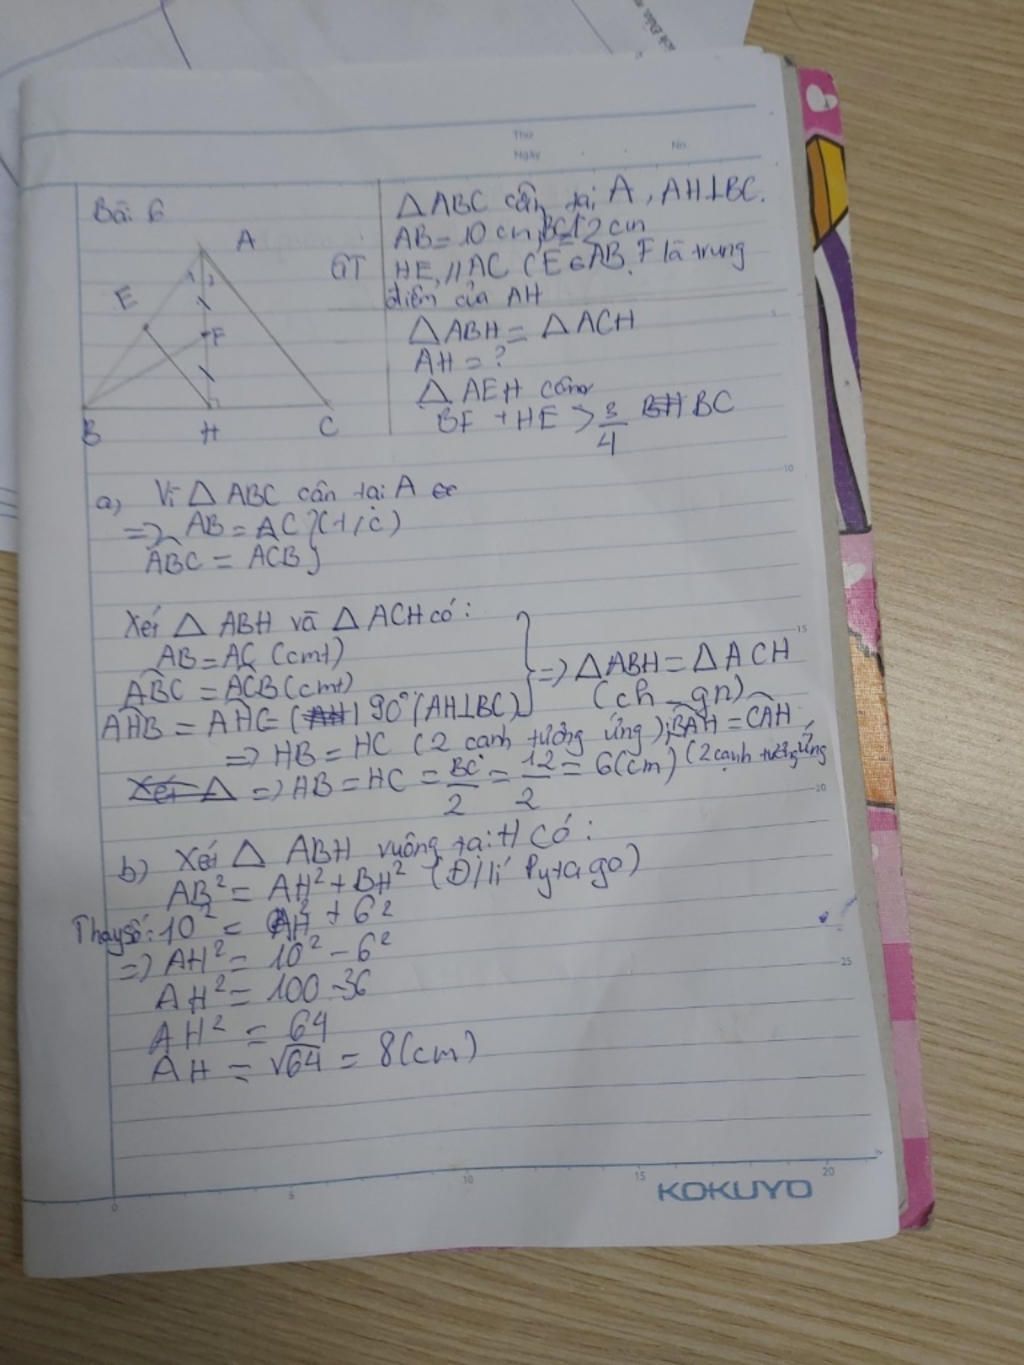 Thứ
Ngày
No.
Bài 6
△ABC cân tại A, AH⊥BC.
AB = 10 cm, BC = 12 cm
GT HE // AC (E ∈ AB, F là trung
điểm của AH
△ABH = △ACH
AH = ?
△AEH cân
BF + HE > 3/4 BC
A
E
1 2
F
B H C
a) Vì △ABC cân tại A
=> AB = AC } (t/c)
ABC = ACB
Xét △ABH và △ACH có:
AB = AC (cmt)
ABC = ACB (cmt)
AHB = AHC = 90° (AH⊥BC)
=> △ABH = △ACH
(ch_gn)
=> HB = HC (2 cạnh tương ứng); BAH = CAH
(2 cạnh tương ứng
=> HB = HC = BC/2 = 12/2 = 6(cm)
b) Xét △ABH vuông tại H có:
AB² = AH² + BH² (Đ/lí Pytago)
Thay số: 10² = AH² + 6²
=> AH² = 10² - 6²
AH² = 100 - 36
AH² = 64
AH = √64 = 8(cm)
10
15
20
25
0 5 10 15 20
KOKUYO